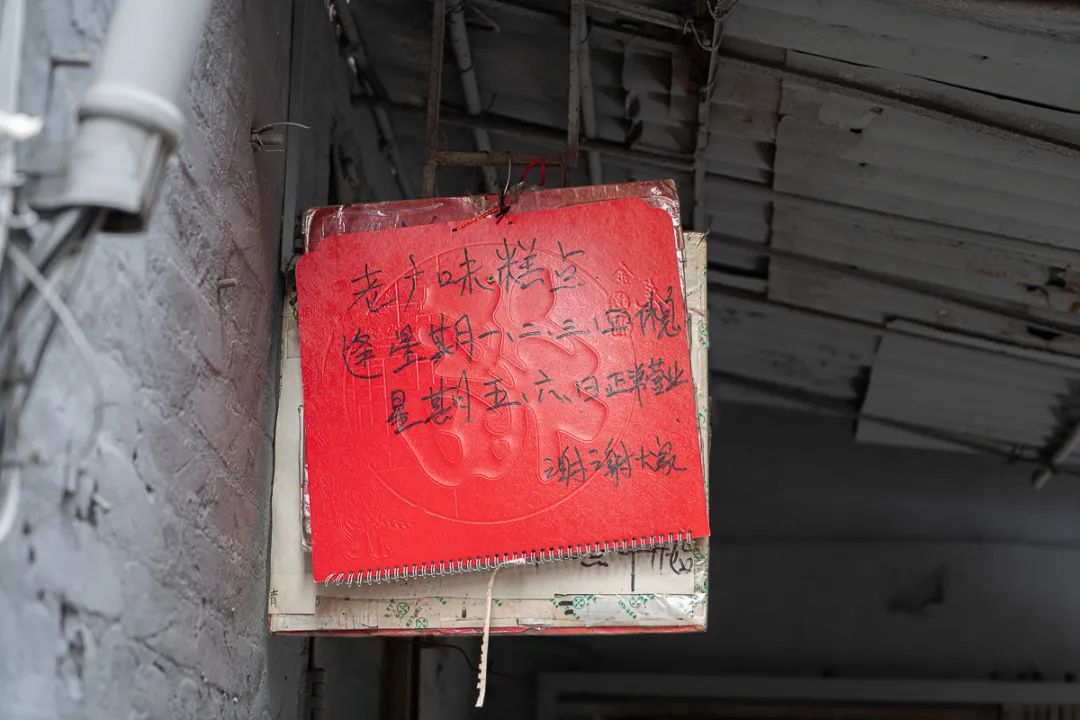 老广味糕点
逢星期一、二、三、四休息
星期五、六、日正常营业.
谢谢大家